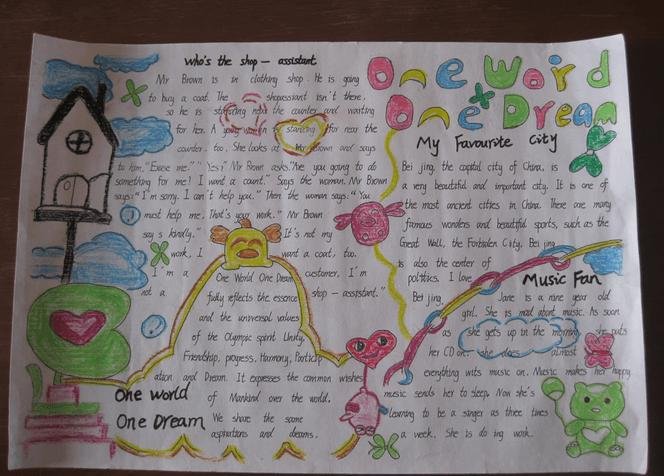 Who's the shop - assistant
Mr Brown is in clothing shop. He is going
to buy a coat. The shopassiant isn't there.
so he is standing near the counter and waiting
for her. A young women is standing for near the
counter. too. She looks at Mr Brown and says
to him, "Excuse me." "Yes?" Mr Brown asks. "Are you going to do
something for me? I want a count." Says the woman. Mr Brown
says: "I'm sorry. I can't help you." Then the woman says: "You
must help me. That's your work." Mr Brown
says kindly." It's not my
work, I want a coat, too.
I'm a customer, I'm
not a shop - assistant."
One Word
One Dream
My Favourite City
Bei jing, the capital city of China, is
a very beautiful and important city. It is one of
the most ancient cities in China. There are many
famous wonders and beautiful sports, such as the
Great Wall, the Forbiden City. Bei jing
is also the center of
politics. I love
Bei jing,
Music Fan
Jane is a nine year old
girl. She is mad about music. As soon
as she gets up in the morning, she puts
her CD on. she does almost
everything with music on. Music makes her happy
music sends her to sleep. Now she's
learning to be a singer as three times
a week. She is do ing work.
One World One Dream
fully reflects the essence
and the universal values
of the Olympic spirit Unity,
Friendship, progress, Harmony, Particip
ation and Dream. It expresses the common wishes
of Mankind over the world.
We share the same
aspirations and dreams.
One world
One Dream